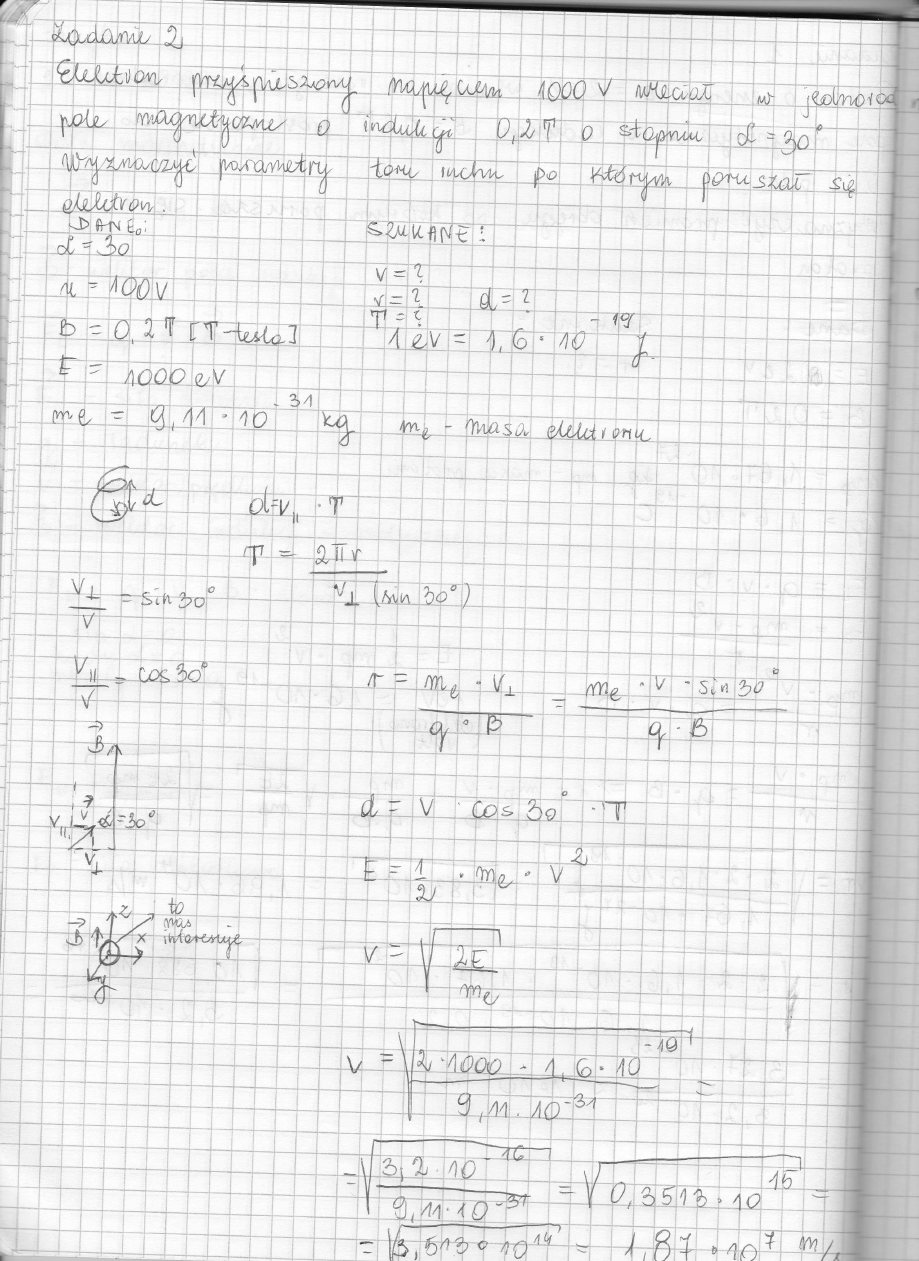 Zadanie 2
Elektron przyśpieszony napięciem 1000 V wleciał w jednorod
pole magnetyczne o indukcji 0,2T o stopniu α = 30°
Wyznaczyć parametry toru ruchu po którym poruszał się
elektron.
DANE: SZUKANE:
α = 30
u = 100V v = ?
r = ? d = ?
T = ?
B = 0,2T [T-tesla] 1 eV = 1,6 · 10^-19 J.
E = 1000 eV
me = 9,11 · 10^-31 kg me - masa elektronu
d d = v_|| · T
T = 2πr / v⊥ (sin 30°)
v⊥ / v = sin 30°
v_|| / v = cos 30° r = me · v⊥ / q · B = me · v · sin 30° / q · B
B
v_|| v α = 30° d = v · cos 30° · T
v⊥
E = 1/2 · me · v^2
B z to nas interesuje
x
y
v = √(2E / me)
v = √(2 · 1000 · 1,6 · 10^-19 / 9,11 · 10^-31) =
= √(3,2 · 10^-16 / 9,11 · 10^-31) = √(0,3513 · 10^15) =
= √(3,513 · 10^14) = 1,87 · 10^7 m/s